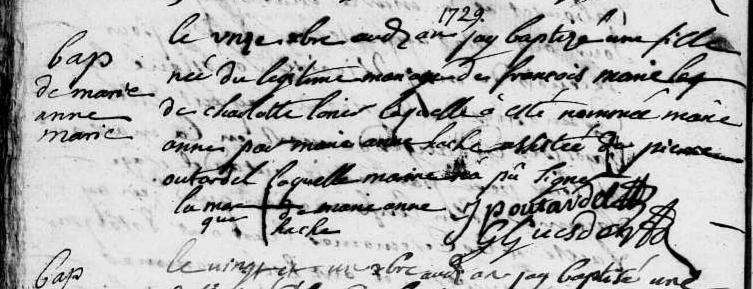 1729
bap
de marie
anne
marie
le unze xbre audt an jay baptizé une fille
née du legitime mariage de francois marie
de charlotte laquelle a esté nommée marie
anne par marie anne hache assistée de pierre
outardel laquelle maraine n'a pû signer
la mar que de marie anne
hache
p outardel
bap
le vingt xbre audt an jay baptisé une